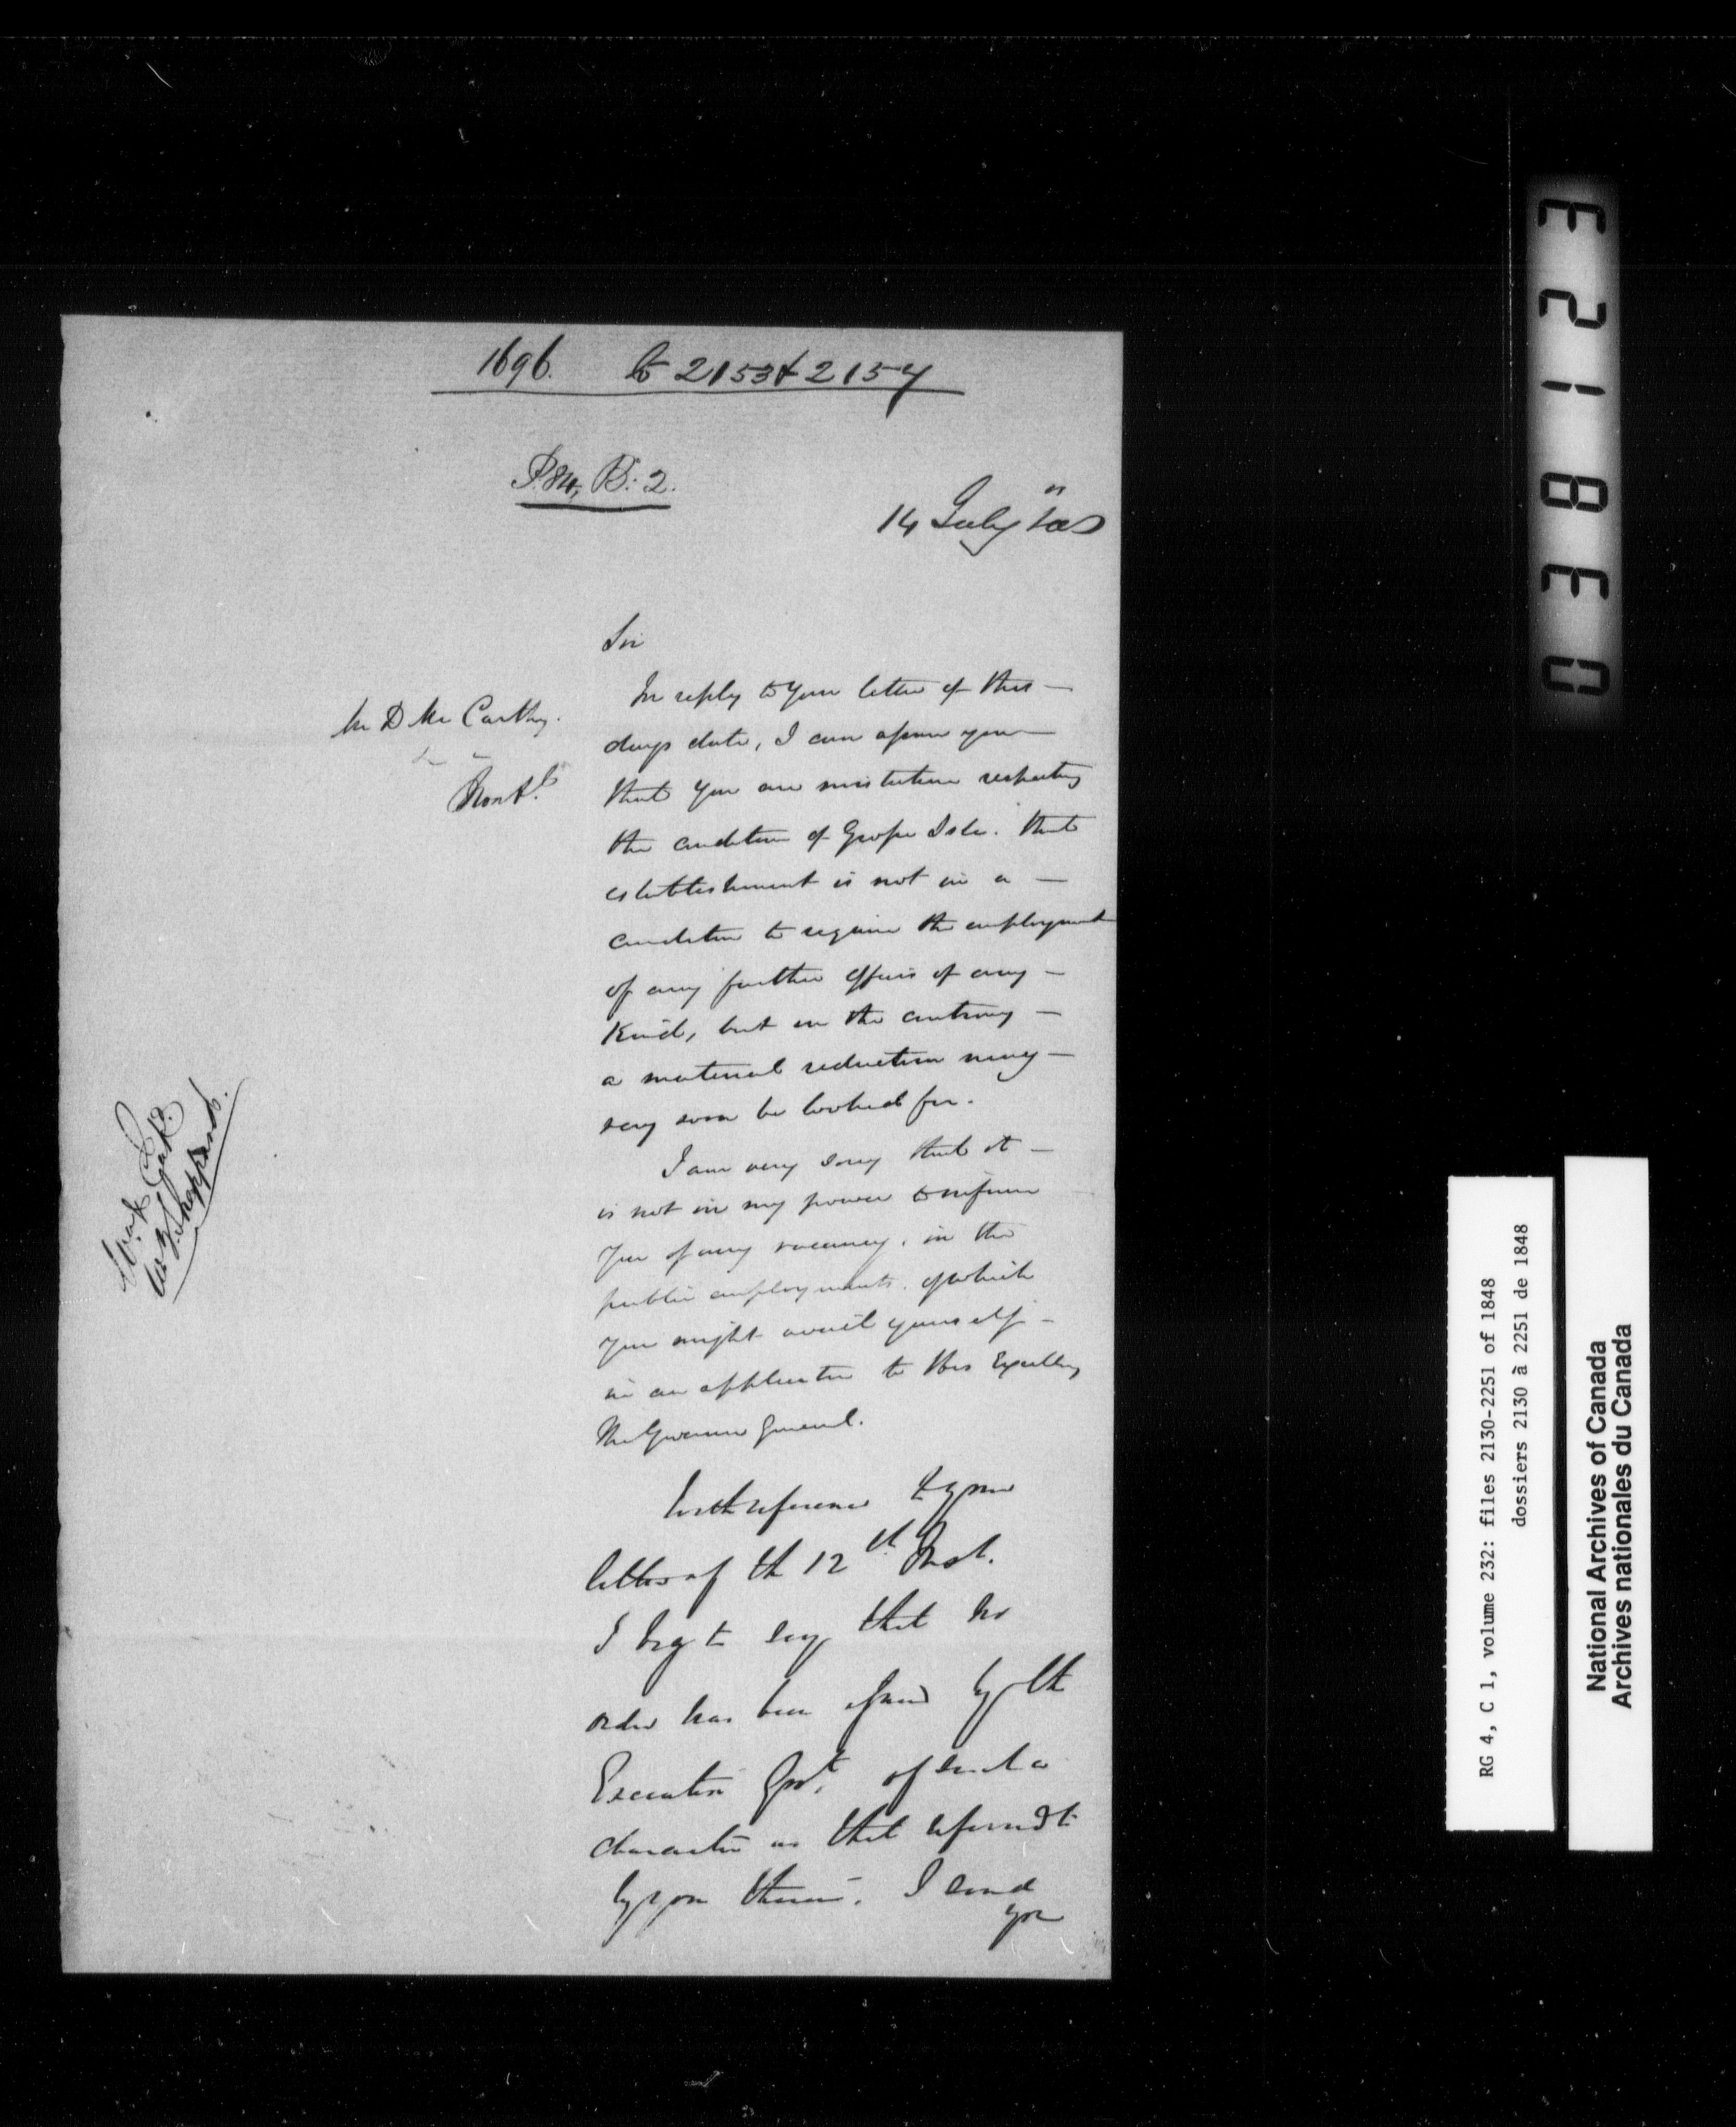 1696. to 2153 & 2154
P. Sec. B: 2.
14 July
Sir
Mr D McCarthy.
Montl.
In reply to your letter of this —
days date, I can assure you —
that you are mistaken respecting
the condition of Grosse Isle. That
establishment is not in a —
condition to require the employment
of any further officers of any —
Kind, but on the contrary —
a material reduction may —
very soon be looked for.
I am very sorry that it —
is not in my power to inform
you of any vacancy, in the
public employments, of which
you might avail yourself —
in an application to His Excellency
the Governor General.
With reference to your
letter of the 12th Inst.
I beg to say that no
order has been issued by the
Executive Govt. of such a
character as that referred to
by you therein. I send
you
W. Sheppard.
03 8123
RG 4, C 1, volume 232: files 2130-2251 of 1848
dossiers 2130 à 2251 de 1848
National Archives of Canada
Archives nationales du Canada